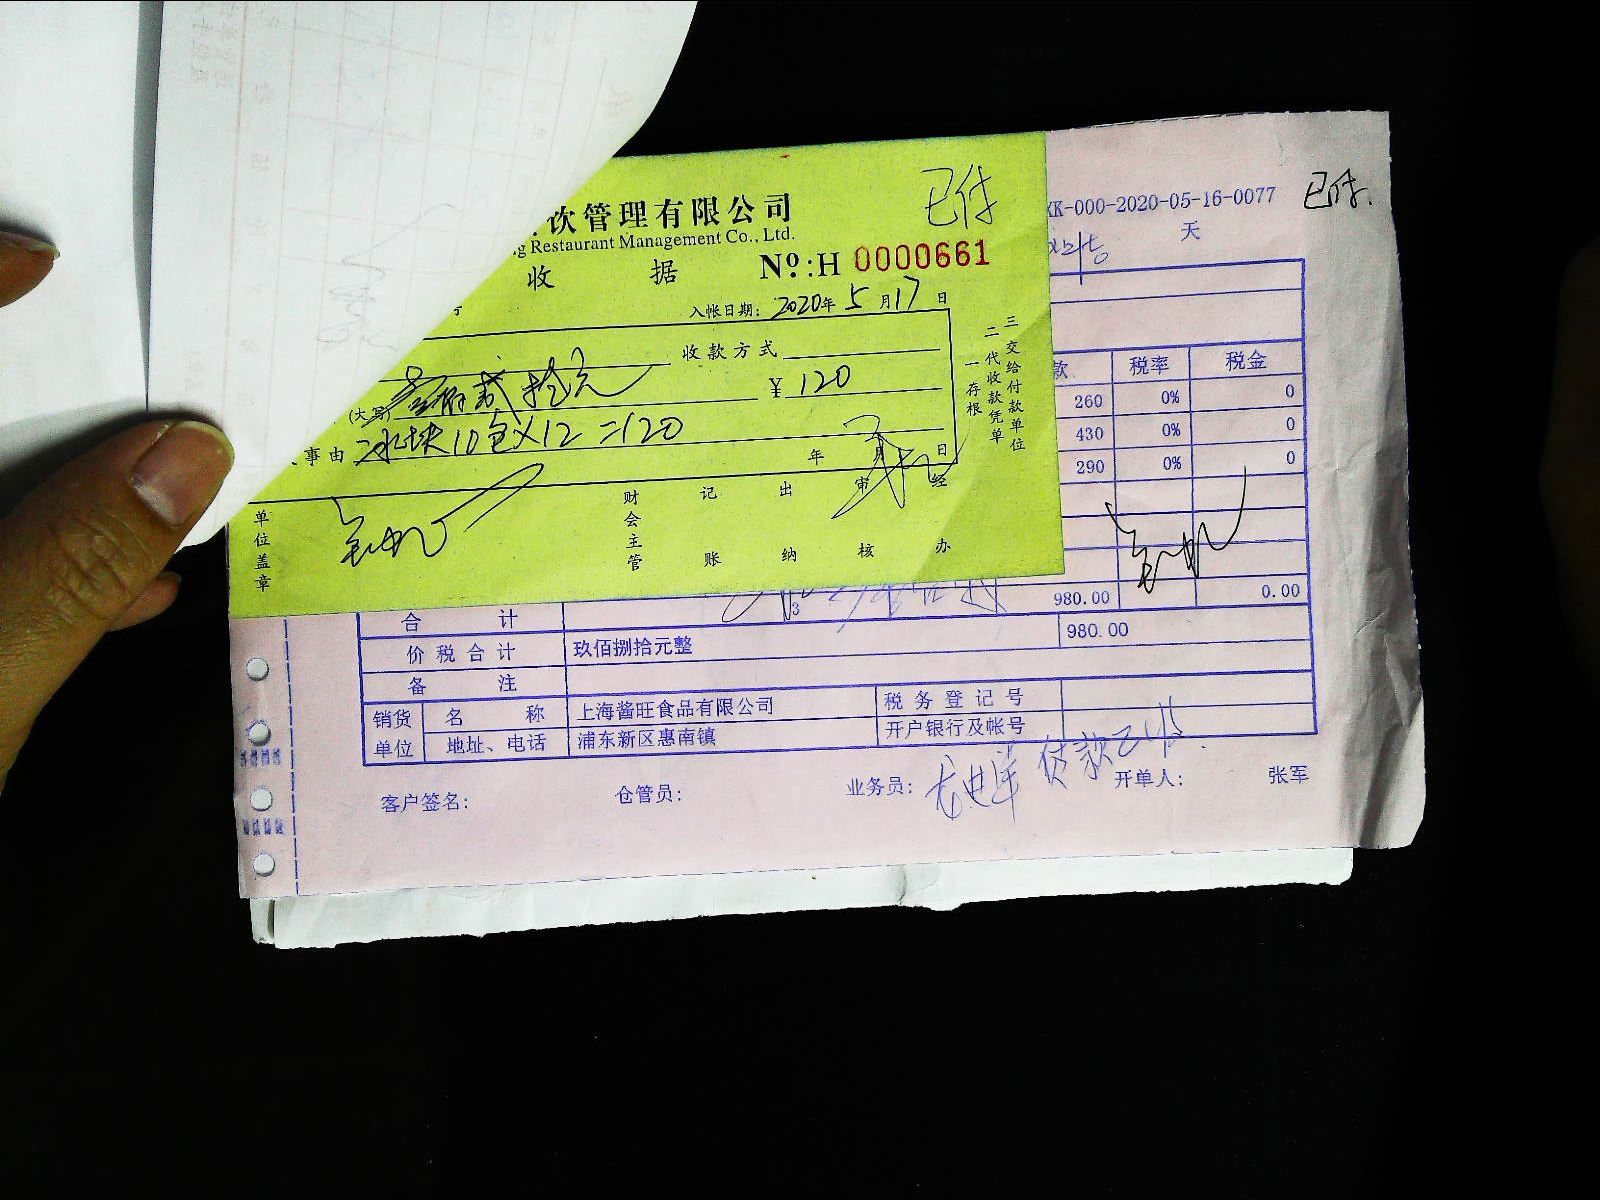 饮管理有限公司
已付
g Restaurant Management Co., Ltd.
收 据 Nº:H 0000661
入帐日期: 2020年 5 月 17 日
收款方式
(大写) 壹佰贰拾元 ¥ 120
事由 冰块10包×12=120
年 月 日
单位盖章
财会主管 记账 出纳 审核 经办
一存根
二代收款凭单
三交给付款单位
XK-000-2020-05-16-0077 已付.
天
款 税率 税金
260 0% 0
430 0% 0
290 0% 0
合 计 3 980.00 0.00
价税合计 玖佰捌拾元整 980.00
备 注
销货单位 名 称 上海酱旺食品有限公司 税务登记号
地址、电话 浦东新区惠南镇 开户银行及帐号
货款已付.
客户签名: 仓管员: 业务员: 开单人: 张军